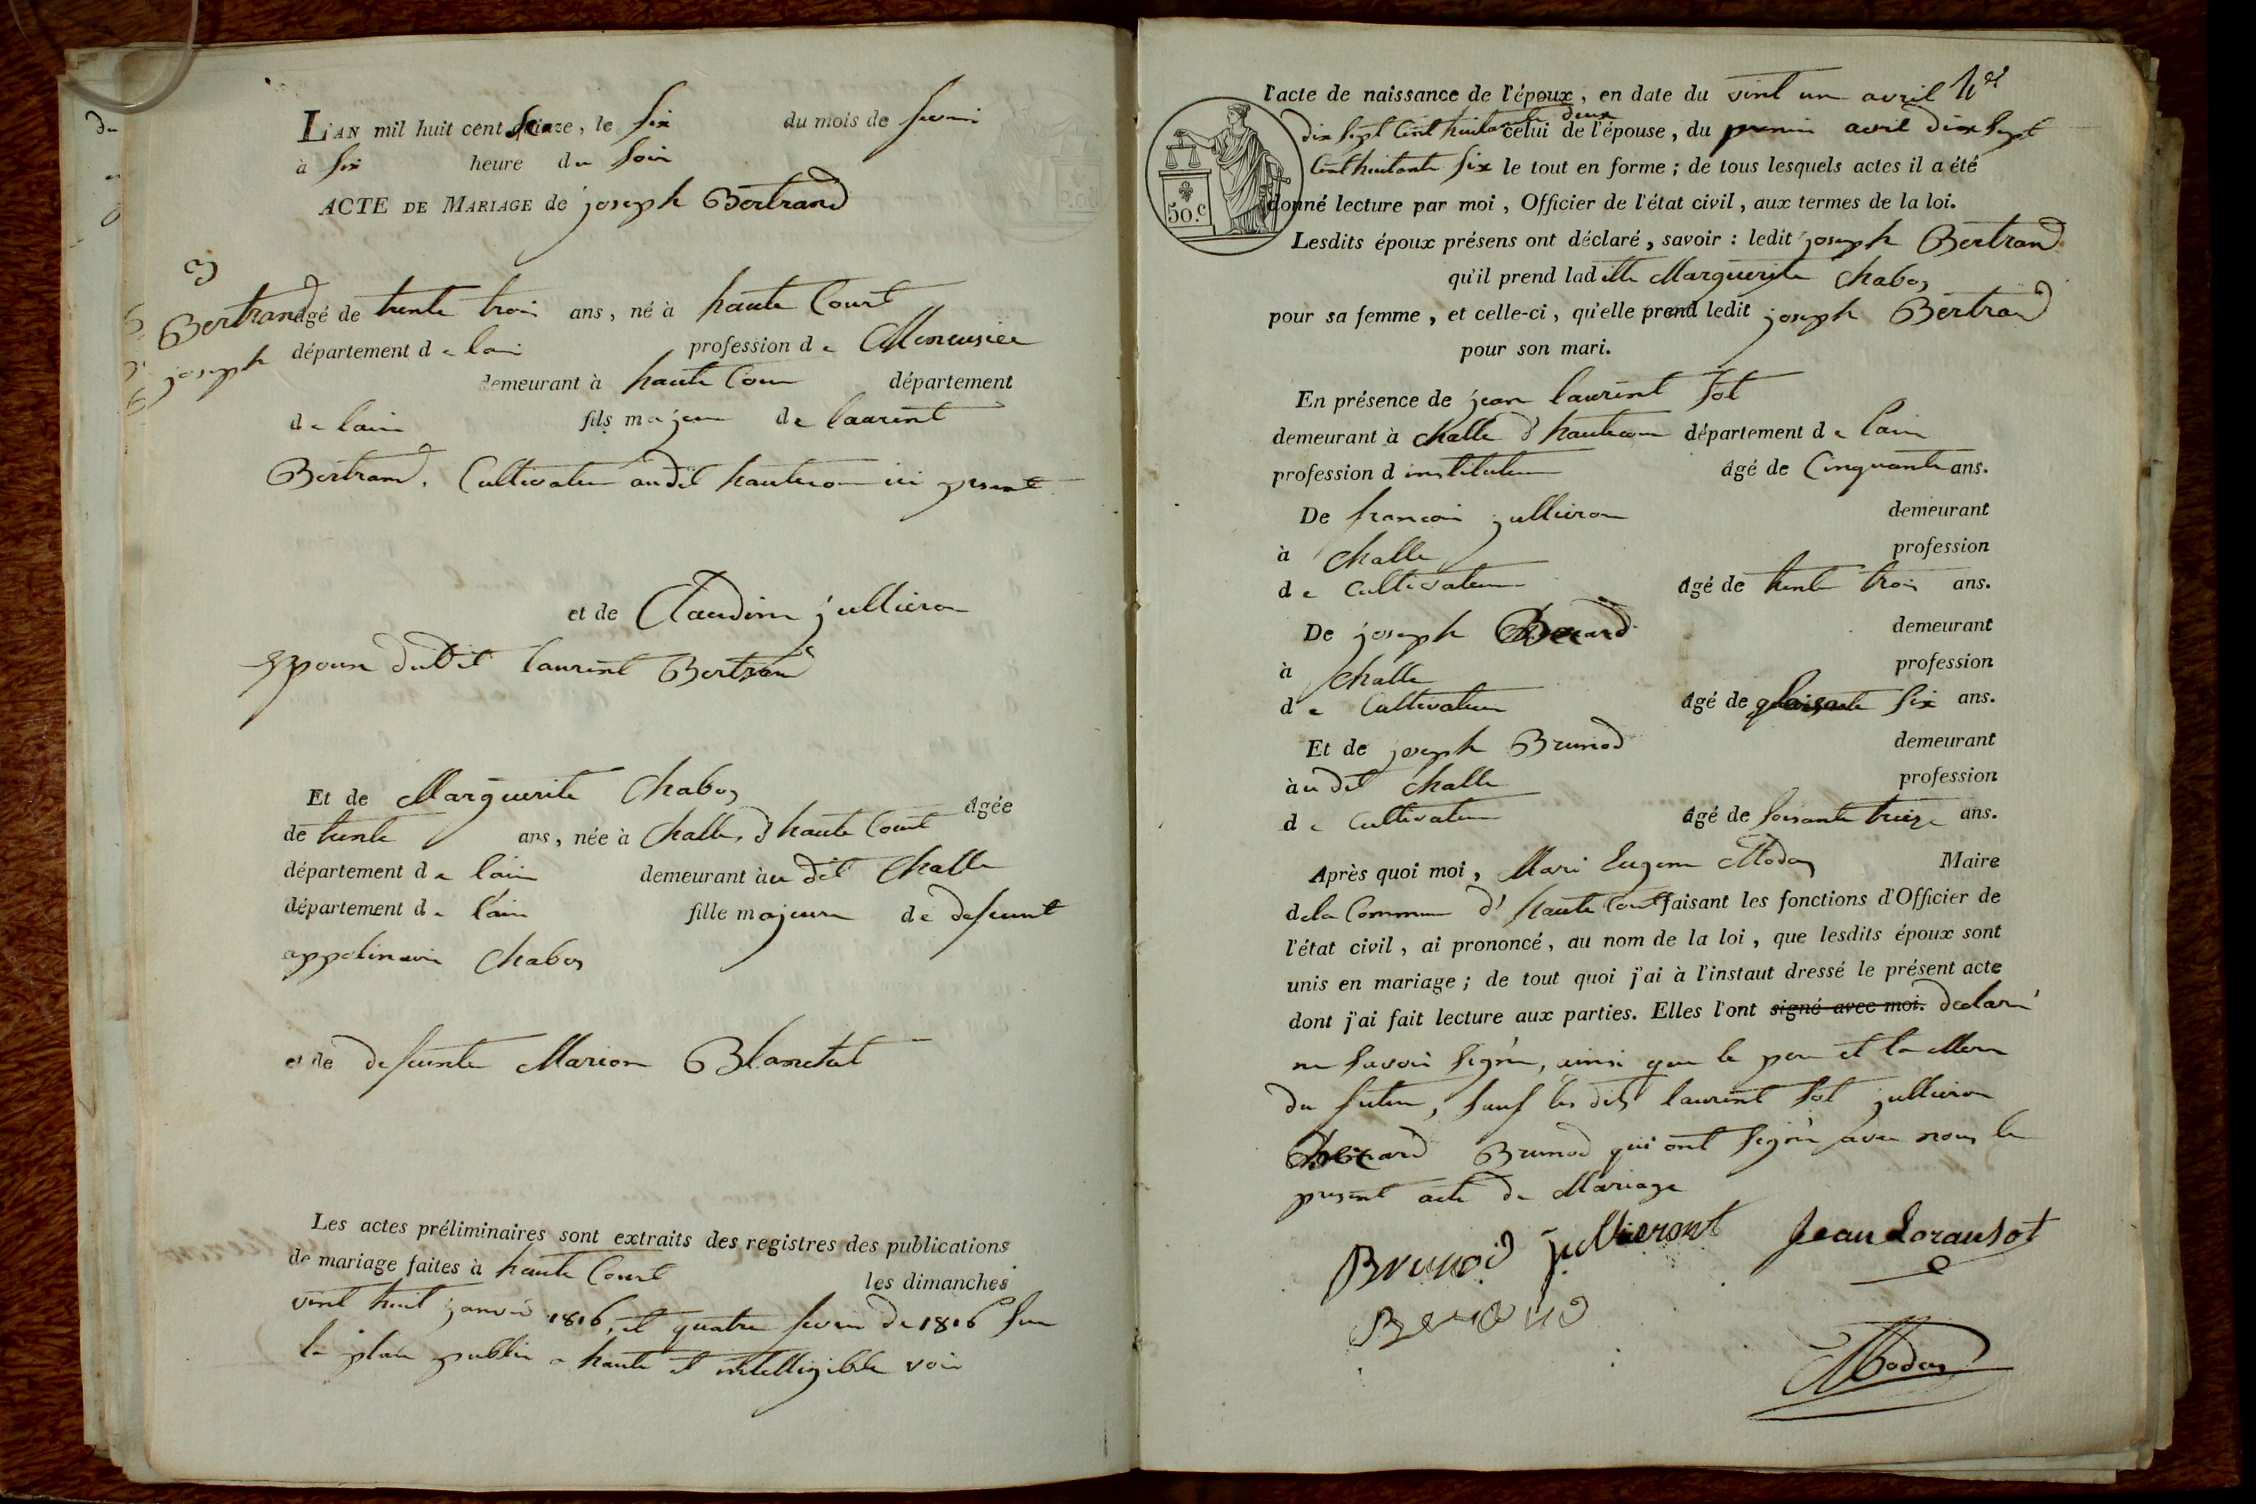 L'AN mil huit cent seize, le six du mois de fevri
à six heure du soir
ACTE DE MARIAGE de joseph Bertrand
3
Bertrand
joseph
agé de trente trois ans, né à haute Court
département de lain profession de Menusier
demeurant à haute Cour département
de lain fils majeur de laurent
Bertrand. Cultivateur audit hautecour ici present
et de Claudine jullieron
Epouse dudit laurent Bertrand
Et de Marguerite Chabos agée
de trente ans, née à Challe, d haute Court
département de lain demeurant àu dit Challe
département de lain fille majeure de defeunt
appolinaire Chabos
et de defeunte Marion Blanchet
Les actes préliminaires sont extraits des registres des publications
de mariage faites à haute Court les dimanches
vint huit janvie 1816, et quatre fevrie de 1816 sur
la place public a haute et intelligible voix
l'acte de naissance de l'époux, en date du vint un avril
dix sept cent huitante deux celui de l'épouse, du premie avril dix sept
Cent huitante six le tout en forme; de tous lesquels actes il a été
donné lecture par moi, Officier de l'état civil, aux termes de la loi.
50.c
Lesdits époux présens ont déclaré, savoir : ledit joseph Bertrand
qu'il prend laditte Marguerite Chabos
pour sa femme, et celle-ci, qu'elle prend ledit joseph Bertrand
pour son mari.
En présence de jean laurent Sot
demeurant à Challe d'hautecour département de lain
profession d instituteur agé de Cinquante ans.
De francois jullieron demeurant
à Challe profession
de Cultivateur agé de trente trois ans.
De joseph demeurant
à Challe profession
de Cultivateur agé de six ans.
Et de joseph Brunod demeurant
àu dit Challe profession
de Cultivateur agé de soisante treize ans.
Après quoi moi, Mari Eugene Modas Maire
dela Commune d' haute Court faisant les fonctions d'Officier de
l'état civil, ai prononcé, au nom de la loi, que lesdits époux sont
unis en mariage; de tout quoi j'ai à l'instaut dressé le présent acte
dont j'ai fait lecture aux parties. Elles l'ont signé avec moi. declaré
ne savoir signer, ainsi que le pere et la Mere
du futeur, sauf les dits laurent Sot jullieron
Brunod qui ont signé avec nous le
present acte de Mariage
Brunod jullieront Jean Loransot
Modas